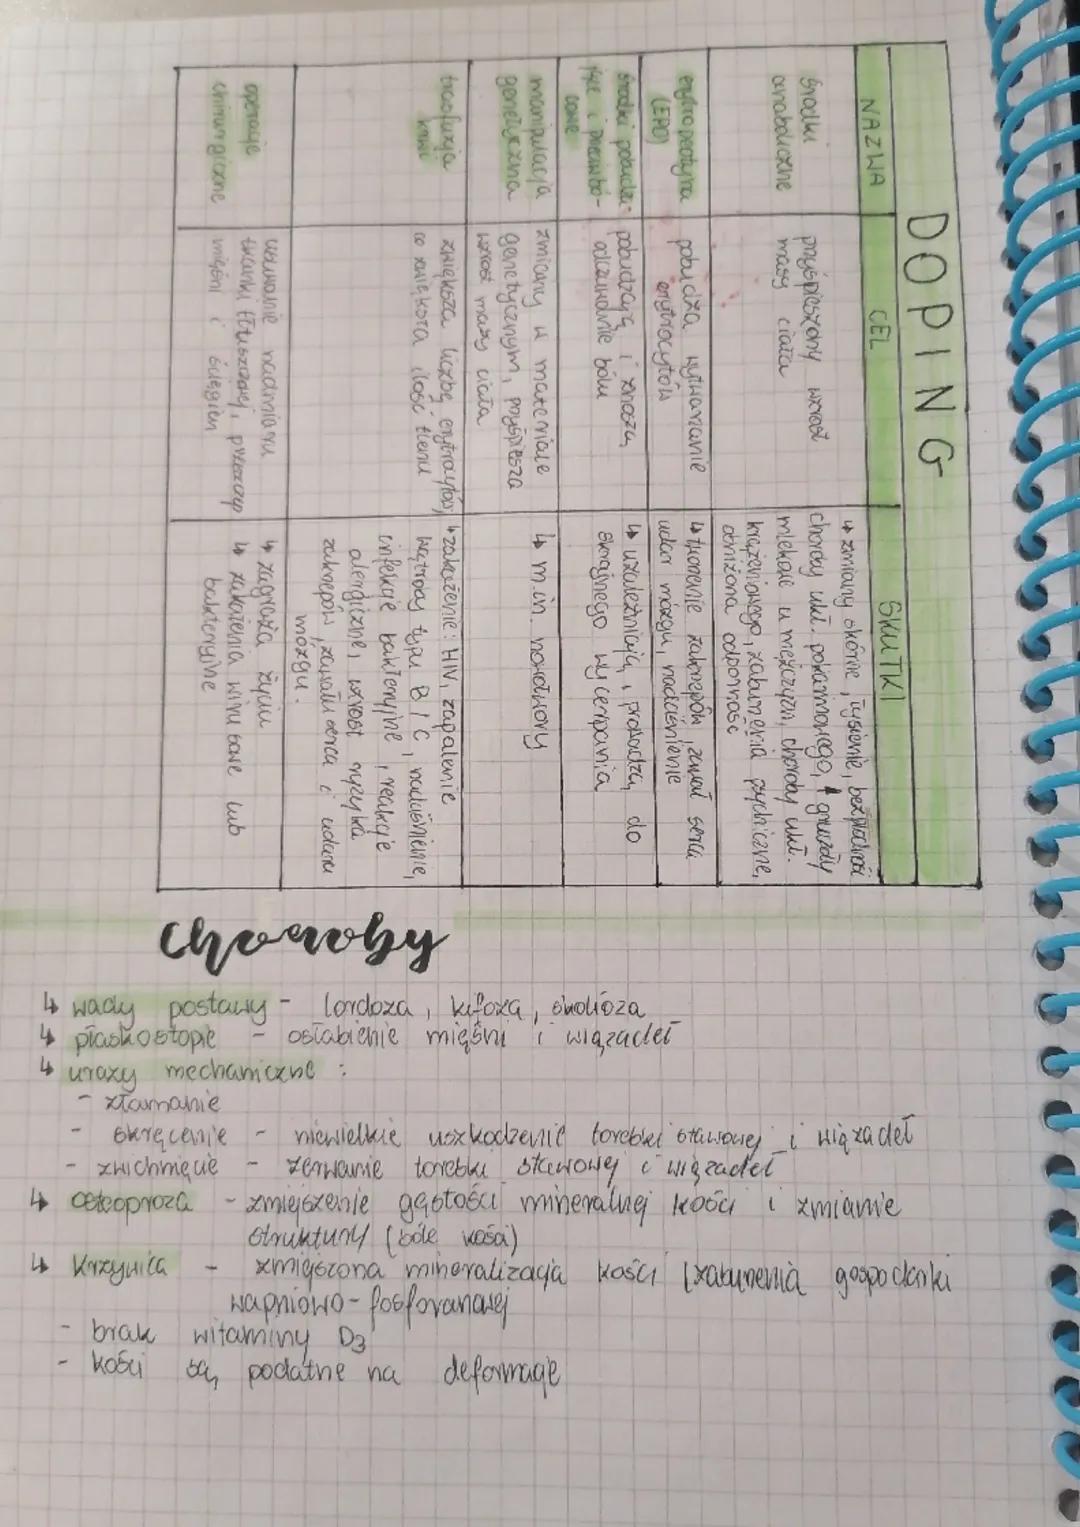 DOPING
NAZWA
CEL
SKUTKI
środki
anaboliczne
przyśpieszony wzrost
masy ciała
↳ zmiany skórne, łysienie, bezpłodność
choroby ukł. pokarmowego, gruczoły
mlekowe u mężczyzn, choroby ukł.
krążeniowego, zaburzenia psychiczne,
obniżona odporność
(EPO)
pobudza wytwarzanie
erytrocytów
↳ tworzenie zakrzepów, zawał serca
udar mózgu, nadciśnienie
środki pobudza-
jące i przeciwbó-
lowe
pobudzają i znoszą
odczuwanie bólu
↳ uzależniają, prowadzą do
skrajnego wycerpania
manipulacja
genetyczna
zmiany w materiale
genetycznym, przyśpiesza
wzrost masy ciała
↳ m.in. nowotwory
krwi
zwiększa liczbę erytrocytów,
co zwiększa ilość tlenu
↳ zakażenie: HIV, zapalenie
wątroby typu B i C, nadciśnienie,
infekcje bakteryjne, reakcje
alergiczne, wzrost ryzyka
zakrzepów, zawału serca i udaru
mózgu.
operacje
chirurgiczne
usuwanie nadmiaru
tkanki tłuszczowej, przeszczep
mięśni i ścięgien
↳ zagraża życiu
↳ zakażenia wirusowe lub
bakteryjne
Choroby
↳ wady postawy - lordoza, kifoza, skolioza
↳ płaskostopie - osłabienie mięśni i wiązadeł
↳ urazy mechaniczne :
- złamanie
- skręcenie - niewielkie uszkodzenie torebki stawowej i wiązadeł
- zwichnięcie - zerwanie torebki stawowej i wiązadeł
↳ osteoproza - zmiejszenie gęstości mineralnej kości i zmianie
struktury (bóle kości)
↳ Krzywica - zmiejszona mineralizacja kości (zaburzenia gospodarki
wapniowo-fosforanowej
- brak witaminy D3
- kości są podatne na deformacje